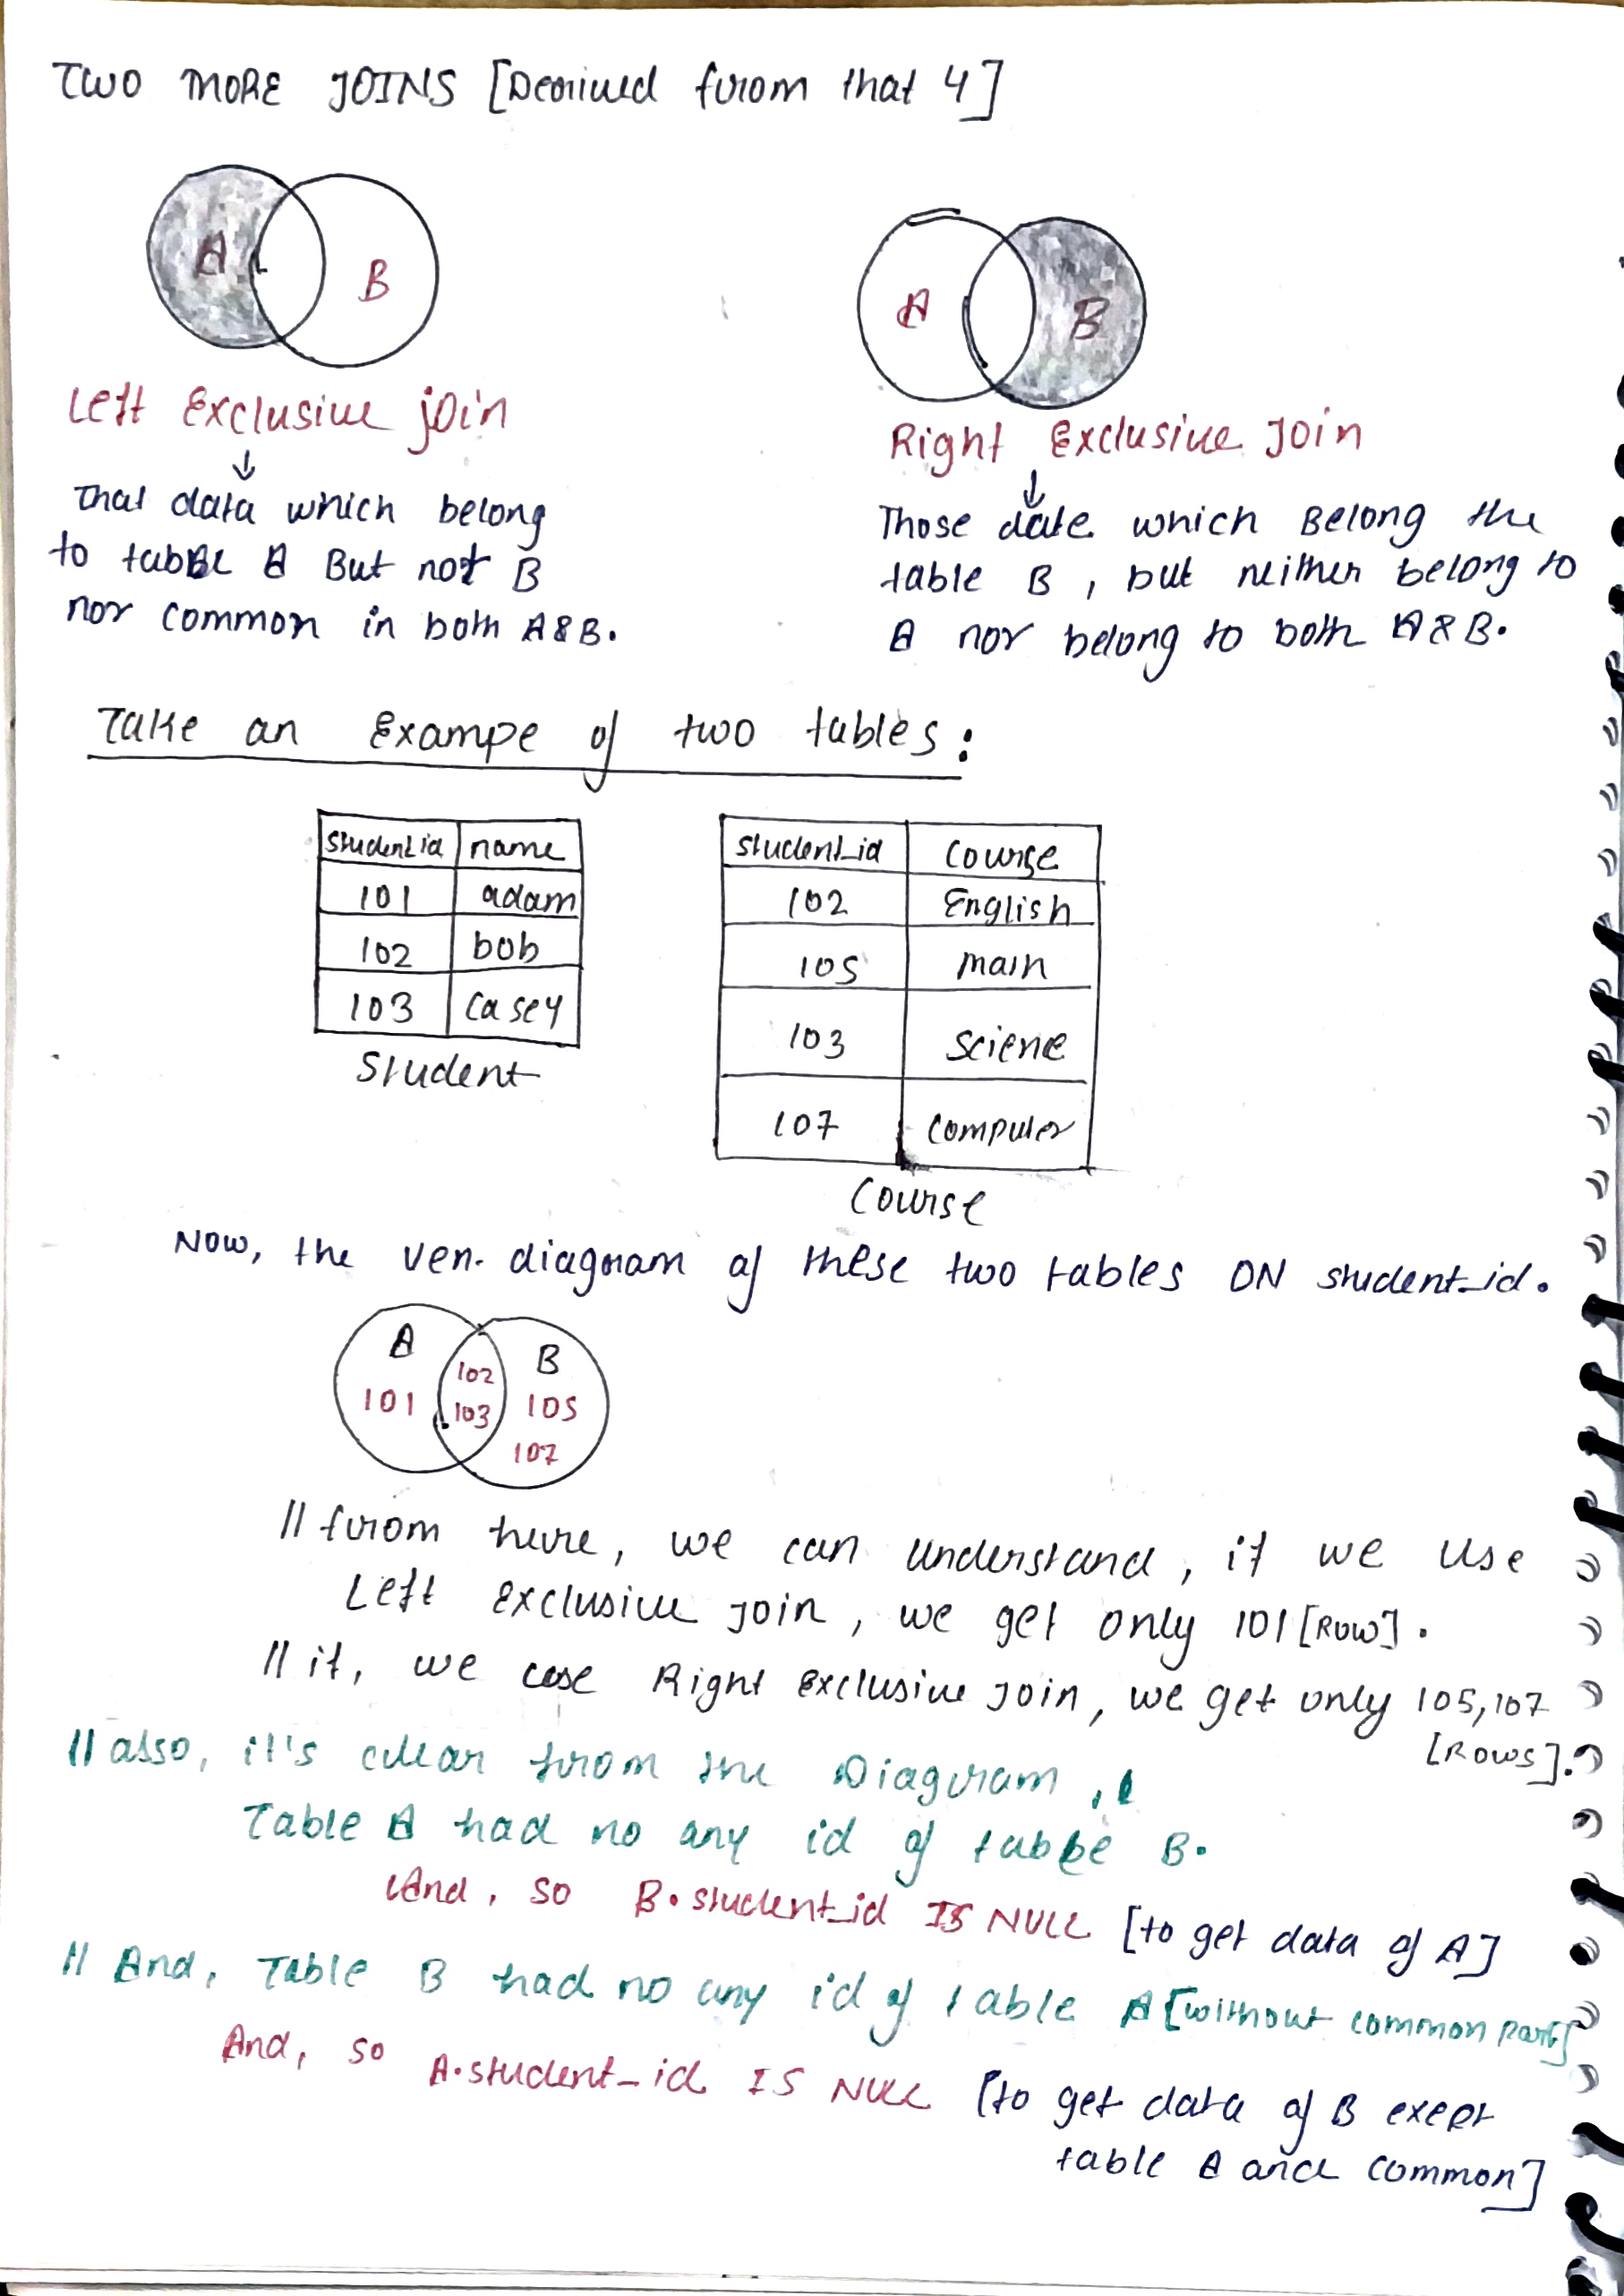 TWO MORE JOINS [Derived from that 4]
A B
A B
Left Exclusive join
Right Exclusive Join
↓
↓
That data which belong
to table A But not B
nor common in both A&B.
Those date which Belong the
table B, but neither belong to
A nor belong to both A&B.
Take an Exampe of two tables:
student_id name
101 adam
102 bob
103 casey
Student
student_id course
102 English
105 math
103 Science
107 computer
Course
Now, the ven. diagram of these two tables ON student_id.
A B
102
101 103 105
107
// from here, we can understand, if we use
Left exclusive join, we get only 101 [Row].
// if, we use Right exclusive join, we get only 105,107
[Rows].
// also, it's clear from the Diagram,
Table A had no any id of table B.
And, so B.student_id IS NULL [to get data of A]
// And, Table B had no any id of table A [without common part]
And, so A.student_id IS NULL [to get data of B exept
table A and common]